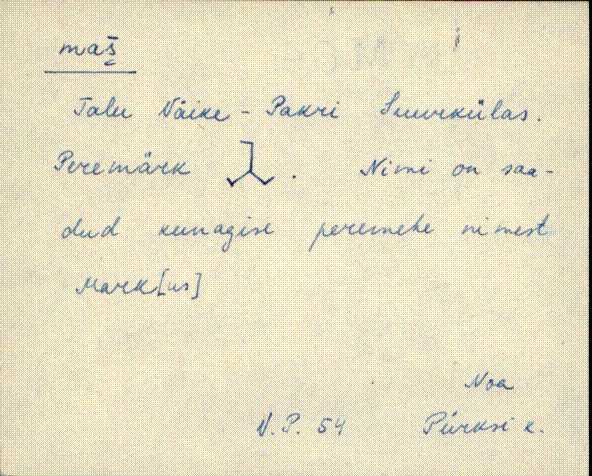 maš̬
Talu Väike-Pakri Suurkülas.
Peremärk . Nimi on saa-
dud kunagise peremehe nimest
Mark[us]
Noa
V.P. 54 Pürksi k.